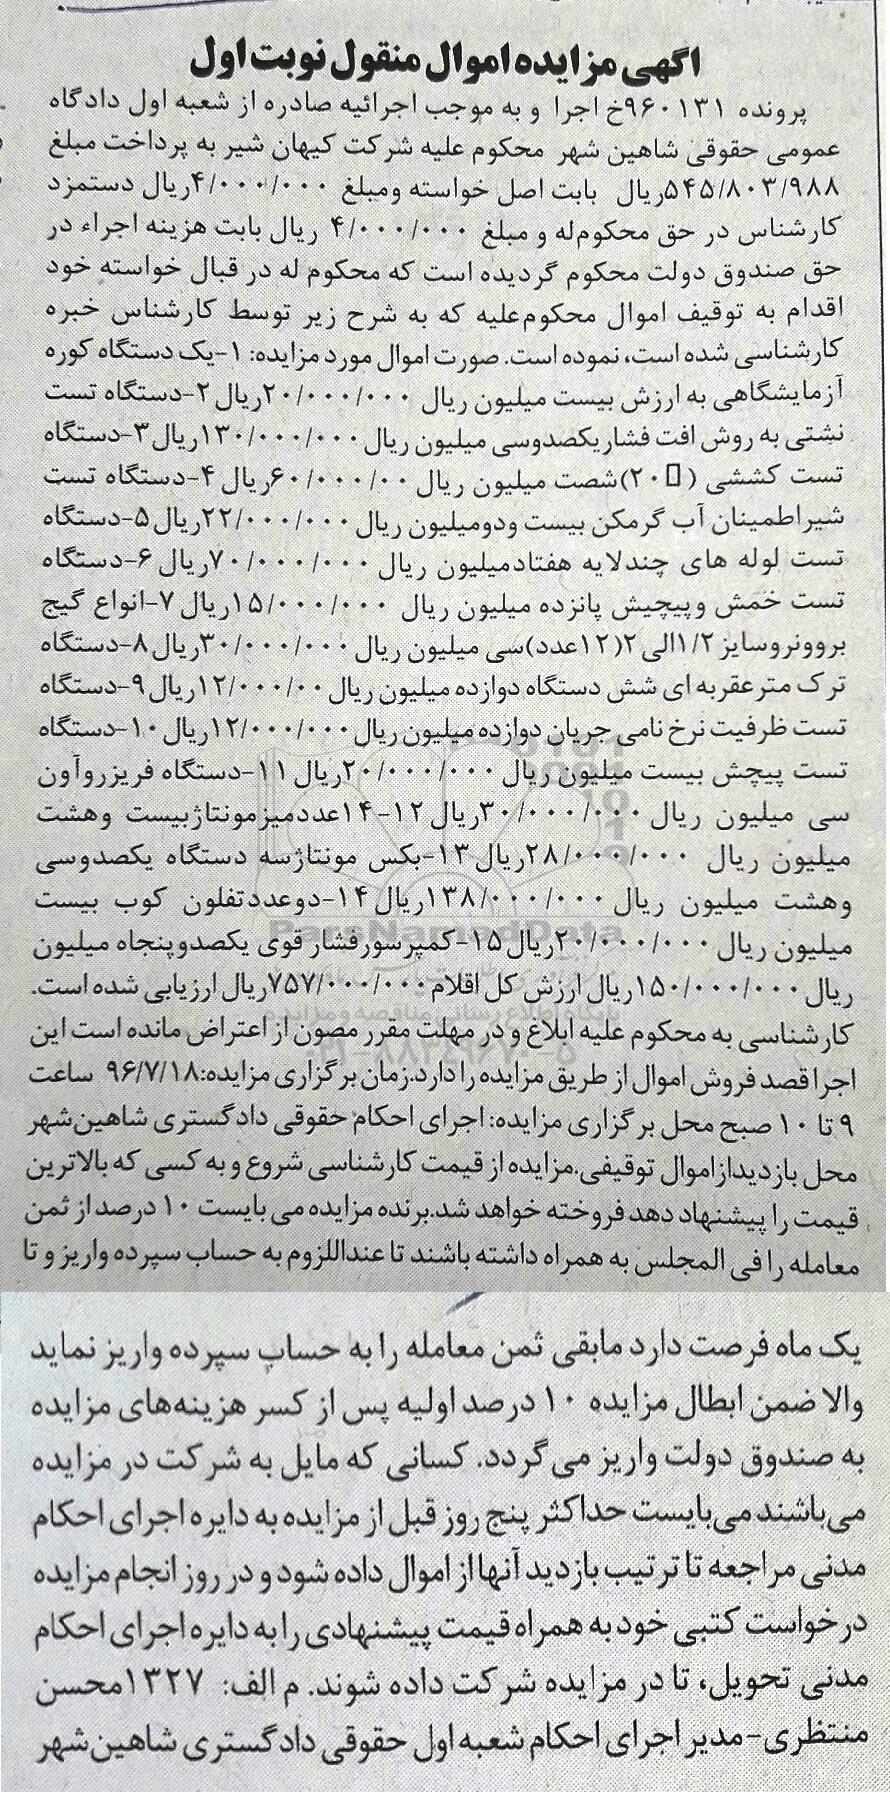 آگهی مزایده اموال منقول نوبت اول
پرونده ۹۶۰۱۳۱خ اجرا و به موجب اجرائیه صادره از شعبه اول دادگاه
عمومی حقوقی شاهین شهر محکوم علیه شرکت کیهان شیر به پرداخت مبلغ
۵۴۵/۸۰۳/۹۸۸ریال بابت اصل خواسته ومبلغ ۴/۰۰۰/۰۰۰ریال دستمزد
کارشناس در حق محکوم‌له و مبلغ ۴/۰۰۰/۰۰۰ ریال بابت هزینه اجراء در
حق صندوق دولت محکوم گردیده است که محکوم له در قبال خواسته خود
اقدام به توقیف اموال محکوم‌علیه که به شرح زیر توسط کارشناس خبره
کارشناسی شده است، نموده است. صورت اموال مورد مزایده: ۱-یک دستگاه کوره
آزمایشگاهی به ارزش بیست میلیون ریال ۲۰/۰۰۰/۰۰۰ریال ۲-دستگاه تست
نشتی به روش افت فشار یکصدوسی میلیون ریال ۱۳۰/۰۰۰/۰۰۰ریال ۳-دستگاه
تست کششی (▯۲۰)شصت میلیون ریال ۶۰/۰۰۰/۰۰ریال ۴-دستگاه تست
شیراطمینان آب گرمکن بیست ودومیلیون ریال ۲۲/۰۰۰/۰۰۰ریال ۵-دستگاه
تست لوله های چندلایه هفتادمیلیون ریال ۷۰/۰۰۰/۰۰۰ریال ۶-دستگاه
تست خمش وپیچیش پانزده میلیون ریال ۱۵/۰۰۰/۰۰۰ریال ۷-انواع گیج
بروونروسایز ۱/۲الی ۲(۱۲عدد)سی میلیون ریال ۳۰/۰۰۰/۰۰۰ریال ۸-دستگاه
ترک مترعقربه ای شش دستگاه دوازده میلیون ریال ۱۲/۰۰۰/۰۰ریال ۹-دستگاه
تست ظرفیت نرخ نامی جریان دوازده میلیون ریال ۱۲/۰۰۰/۰۰۰ریال ۱۰-دستگاه
تست پیچش بیست میلیون ریال ۲۰/۰۰۰/۰۰۰ریال ۱۱-دستگاه فریزروآون
سی میلیون ریال ۳۰/۰۰۰/۰۰۰ریال ۱۲-۱۴عددمیزمونتاژبیست وهشت
میلیون ریال ۲۸/۰۰۰/۰۰۰ریال ۱۳-بکس مونتاژسه دستگاه یکصدوسی
وهشت میلیون ریال ۱۳۸/۰۰۰/۰۰۰ریال ۱۴-دوعددتفلون کوب بیست
ParsNamadData
میلیون ریال ۲۰/۰۰۰/۰۰۰ریال ۱۵-کمپرسورفشار قوی یکصدوپنجاه میلیون
ریال ۱۵۰/۰۰۰/۰۰۰ریال ارزش کل اقلام ۷۵۷/۰۰۰/۰۰۰ریال ارزیابی شده است.
پایگاه اطلاع رسانی مناقصه و مزایده
کارشناسی به محکوم علیه ابلاغ و در مهلت مقرر مصون از اعتراض مانده است این
۰۲۱-۸۸۳۴۹۶۷۰-۵
اجرا قصد فروش اموال از طریق مزایده را دارد.زمان برگزاری مزایده:۹۶/۷/۱۸ ساعت
۹ تا ۱۰ صبح محل برگزاری مزایده: اجرای احکام حقوقی دادگستری شاهین‌شهر
محل بازدیدازاموال توقیفی.مزایده از قیمت کارشناسی شروع و به کسی که بالاترین
قیمت را پیشنهاد دهد فروخته خواهد شد.برنده مزایده می بایست ۱۰ درصد از ثمن
معامله را فی المجلس به همراه داشته باشند تا عنداللزوم به حساب سپرده واریز و تا
یک ماه فرصت دارد مابقی ثمن معامله را به حساب سپرده واریز نماید
والا ضمن ابطال مزایده ۱۰ درصد اولیه پس از کسر هزینه‌های مزایده
به صندوق دولت واریز می‌گردد. کسانی که مایل به شرکت در مزایده
می‌باشند می‌بایست حداکثر پنج روز قبل از مزایده به دایره اجرای احکام
مدنی مراجعه تا ترتیب بازدید آنها از اموال داده شود و در روز انجام مزایده
درخواست کتبی خود به همراه قیمت پیشنهادی را به دایره اجرای احکام
مدنی تحویل، تا در مزایده شرکت داده شوند. م الف: ۱۳۲۷محسن
منتظری-مدیر اجرای احکام شعبه اول حقوقی دادگستری شاهین‌شهر